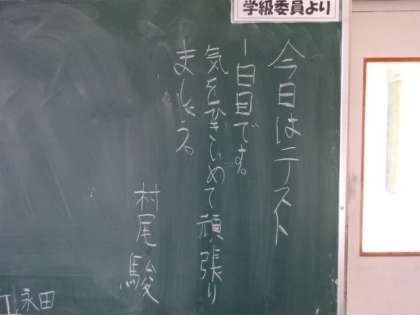 学級委員より
今日はテスト
1日目です。
気をひきしめて頑張り
ましょう。
村尾駿
永田